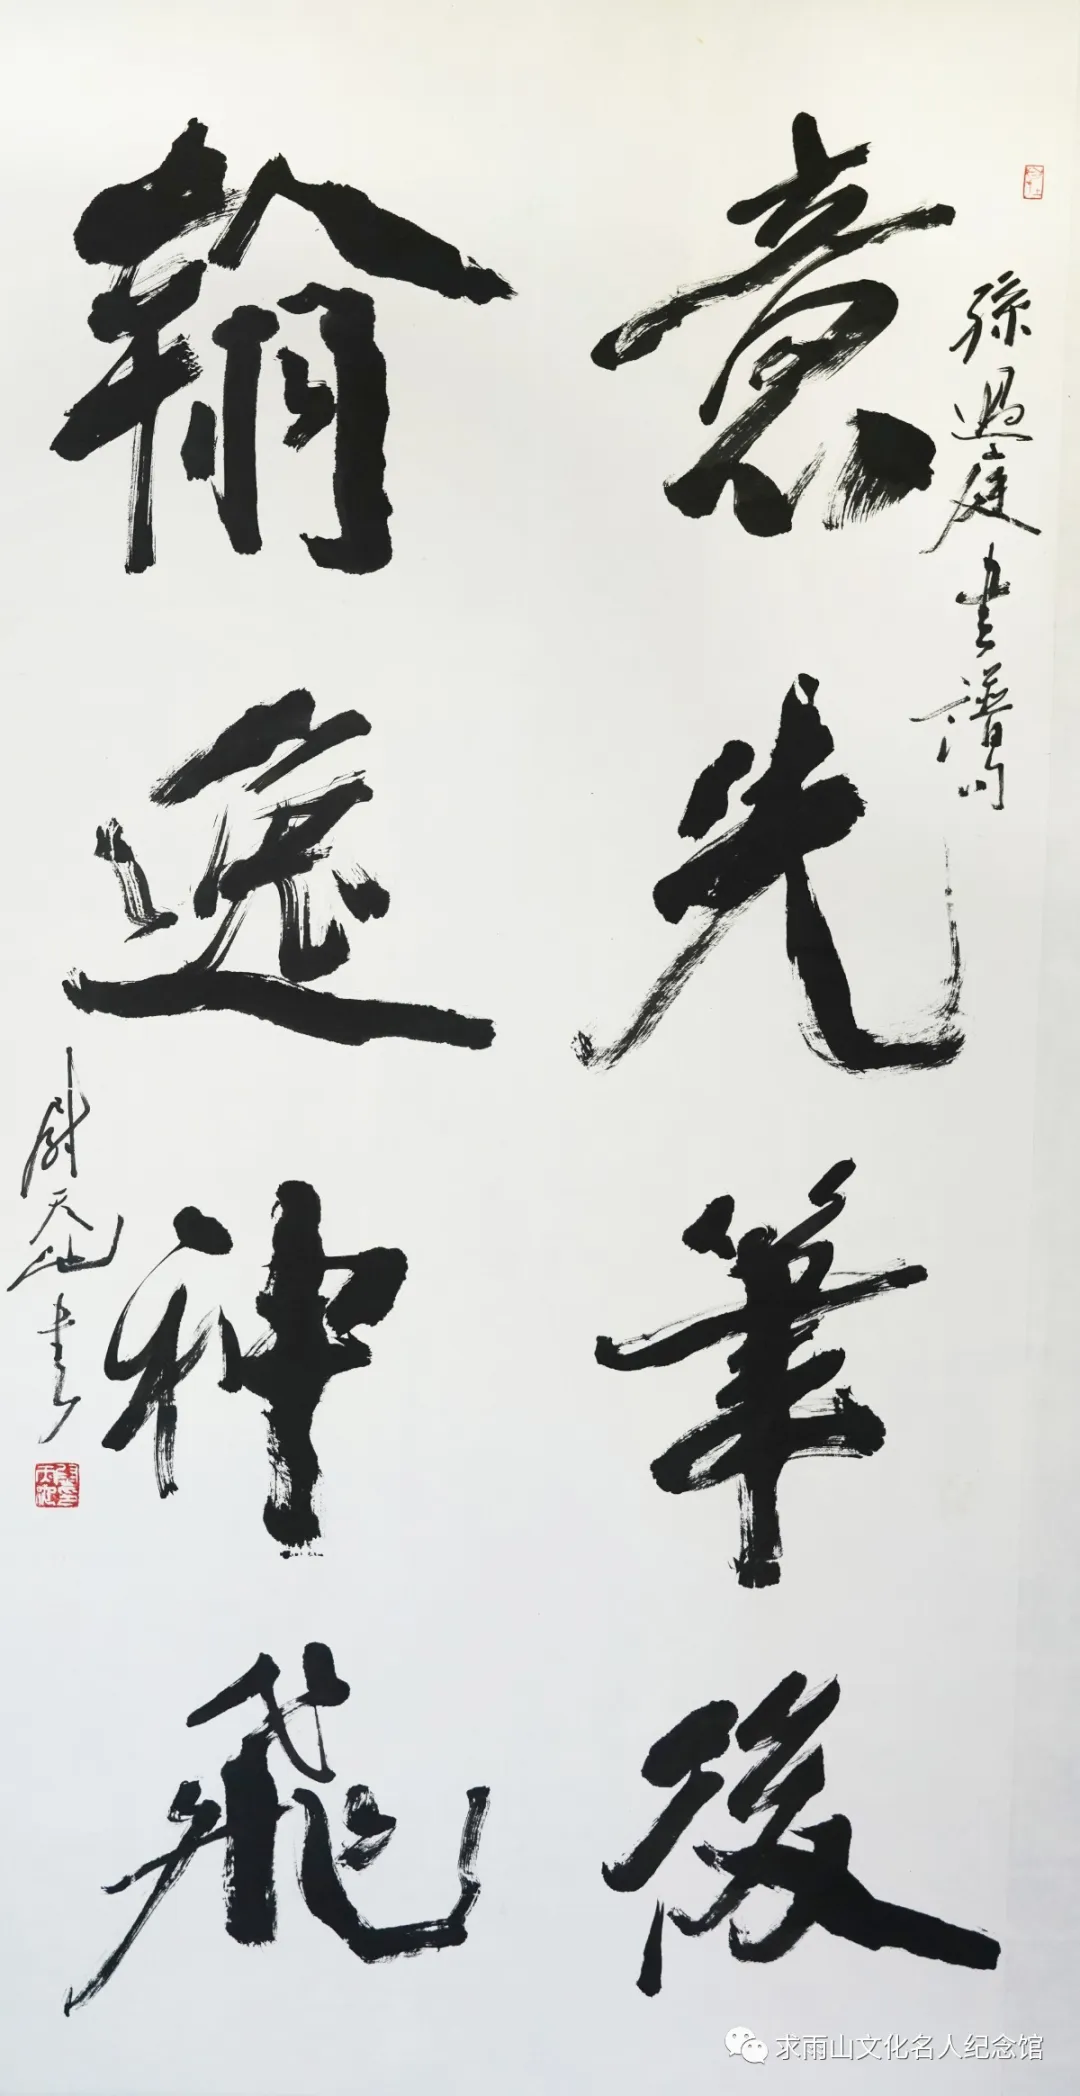 孫過庭書譜句
意先筆後
翰逸神飛
尉天池書
求雨山文化名人纪念馆